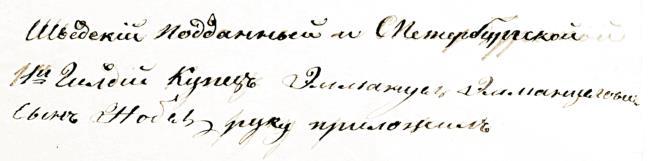 Шведскій подданный и СПетербургской
1й Гилдіи Купецъ Эммануел Эммануелович
сынъ Нобель руку приложилъ